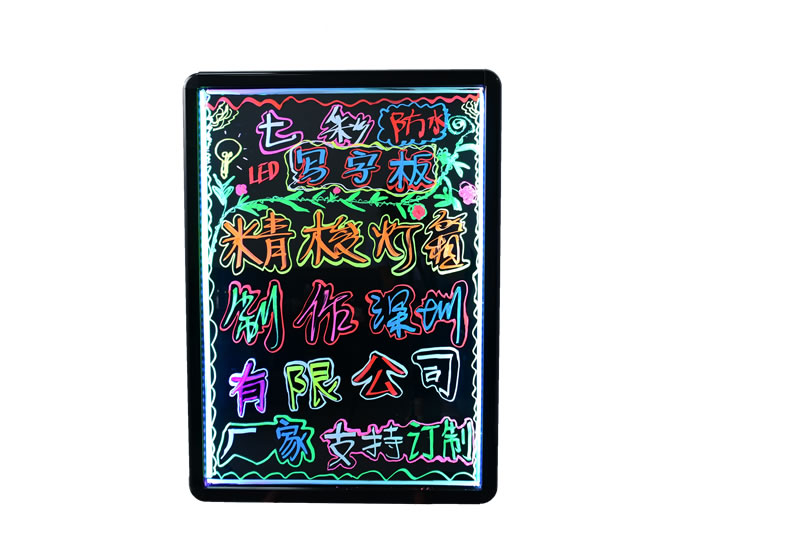 七彩 防水
LED 写字板
精梭灯箱
制作深圳
有限公司
厂家支持订制